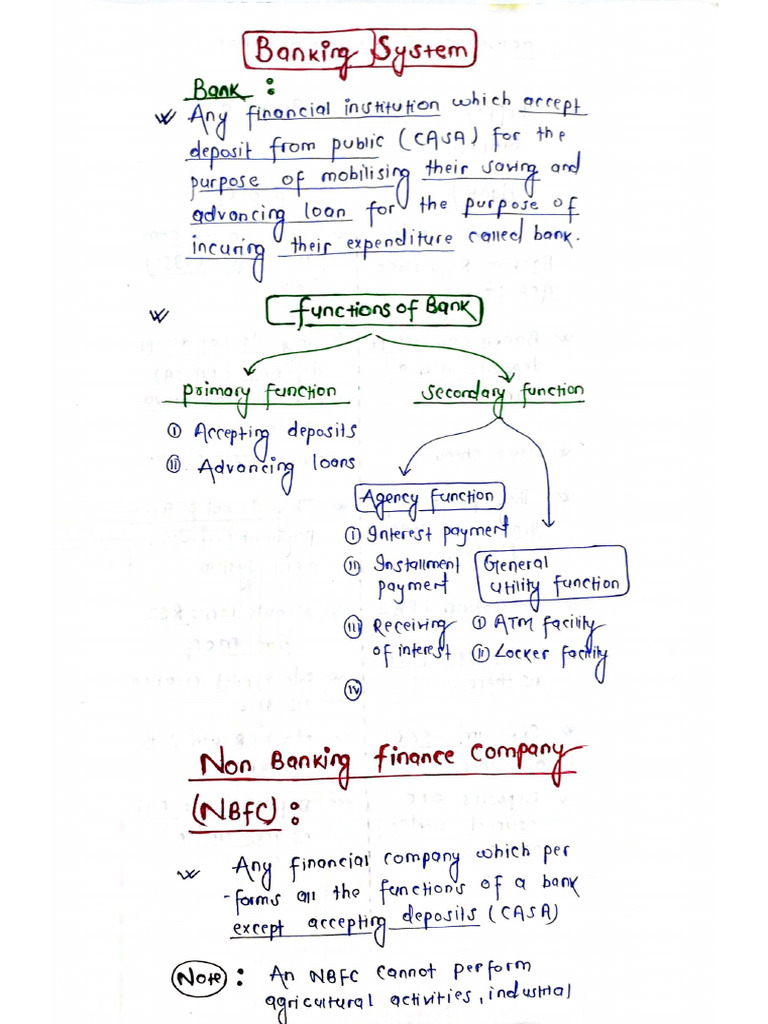 Banking System
Bank :
Any financial institution which accept
deposit from public (CASA) for the
purpose of mobilising their saving and
advancing loan for the purpose of
incuring their expenditure called bank.
Functions of Bank
Primary function
Secondary function
(i) Accepting deposits
(ii) Advancing loans
Agency function
(i) Interest payment
(ii) Installment
payment
(iii) Receiving
of interest
(iv)
General
Utility function
(i) ATM facility
(ii) Locker facility
Non Banking Finance Company
(NBFC) :
Any financial company which per
-forms all the functions of a bank
except accepting deposits (CASA)
Note : An NBFC cannot perform
agricultural activities, industrial